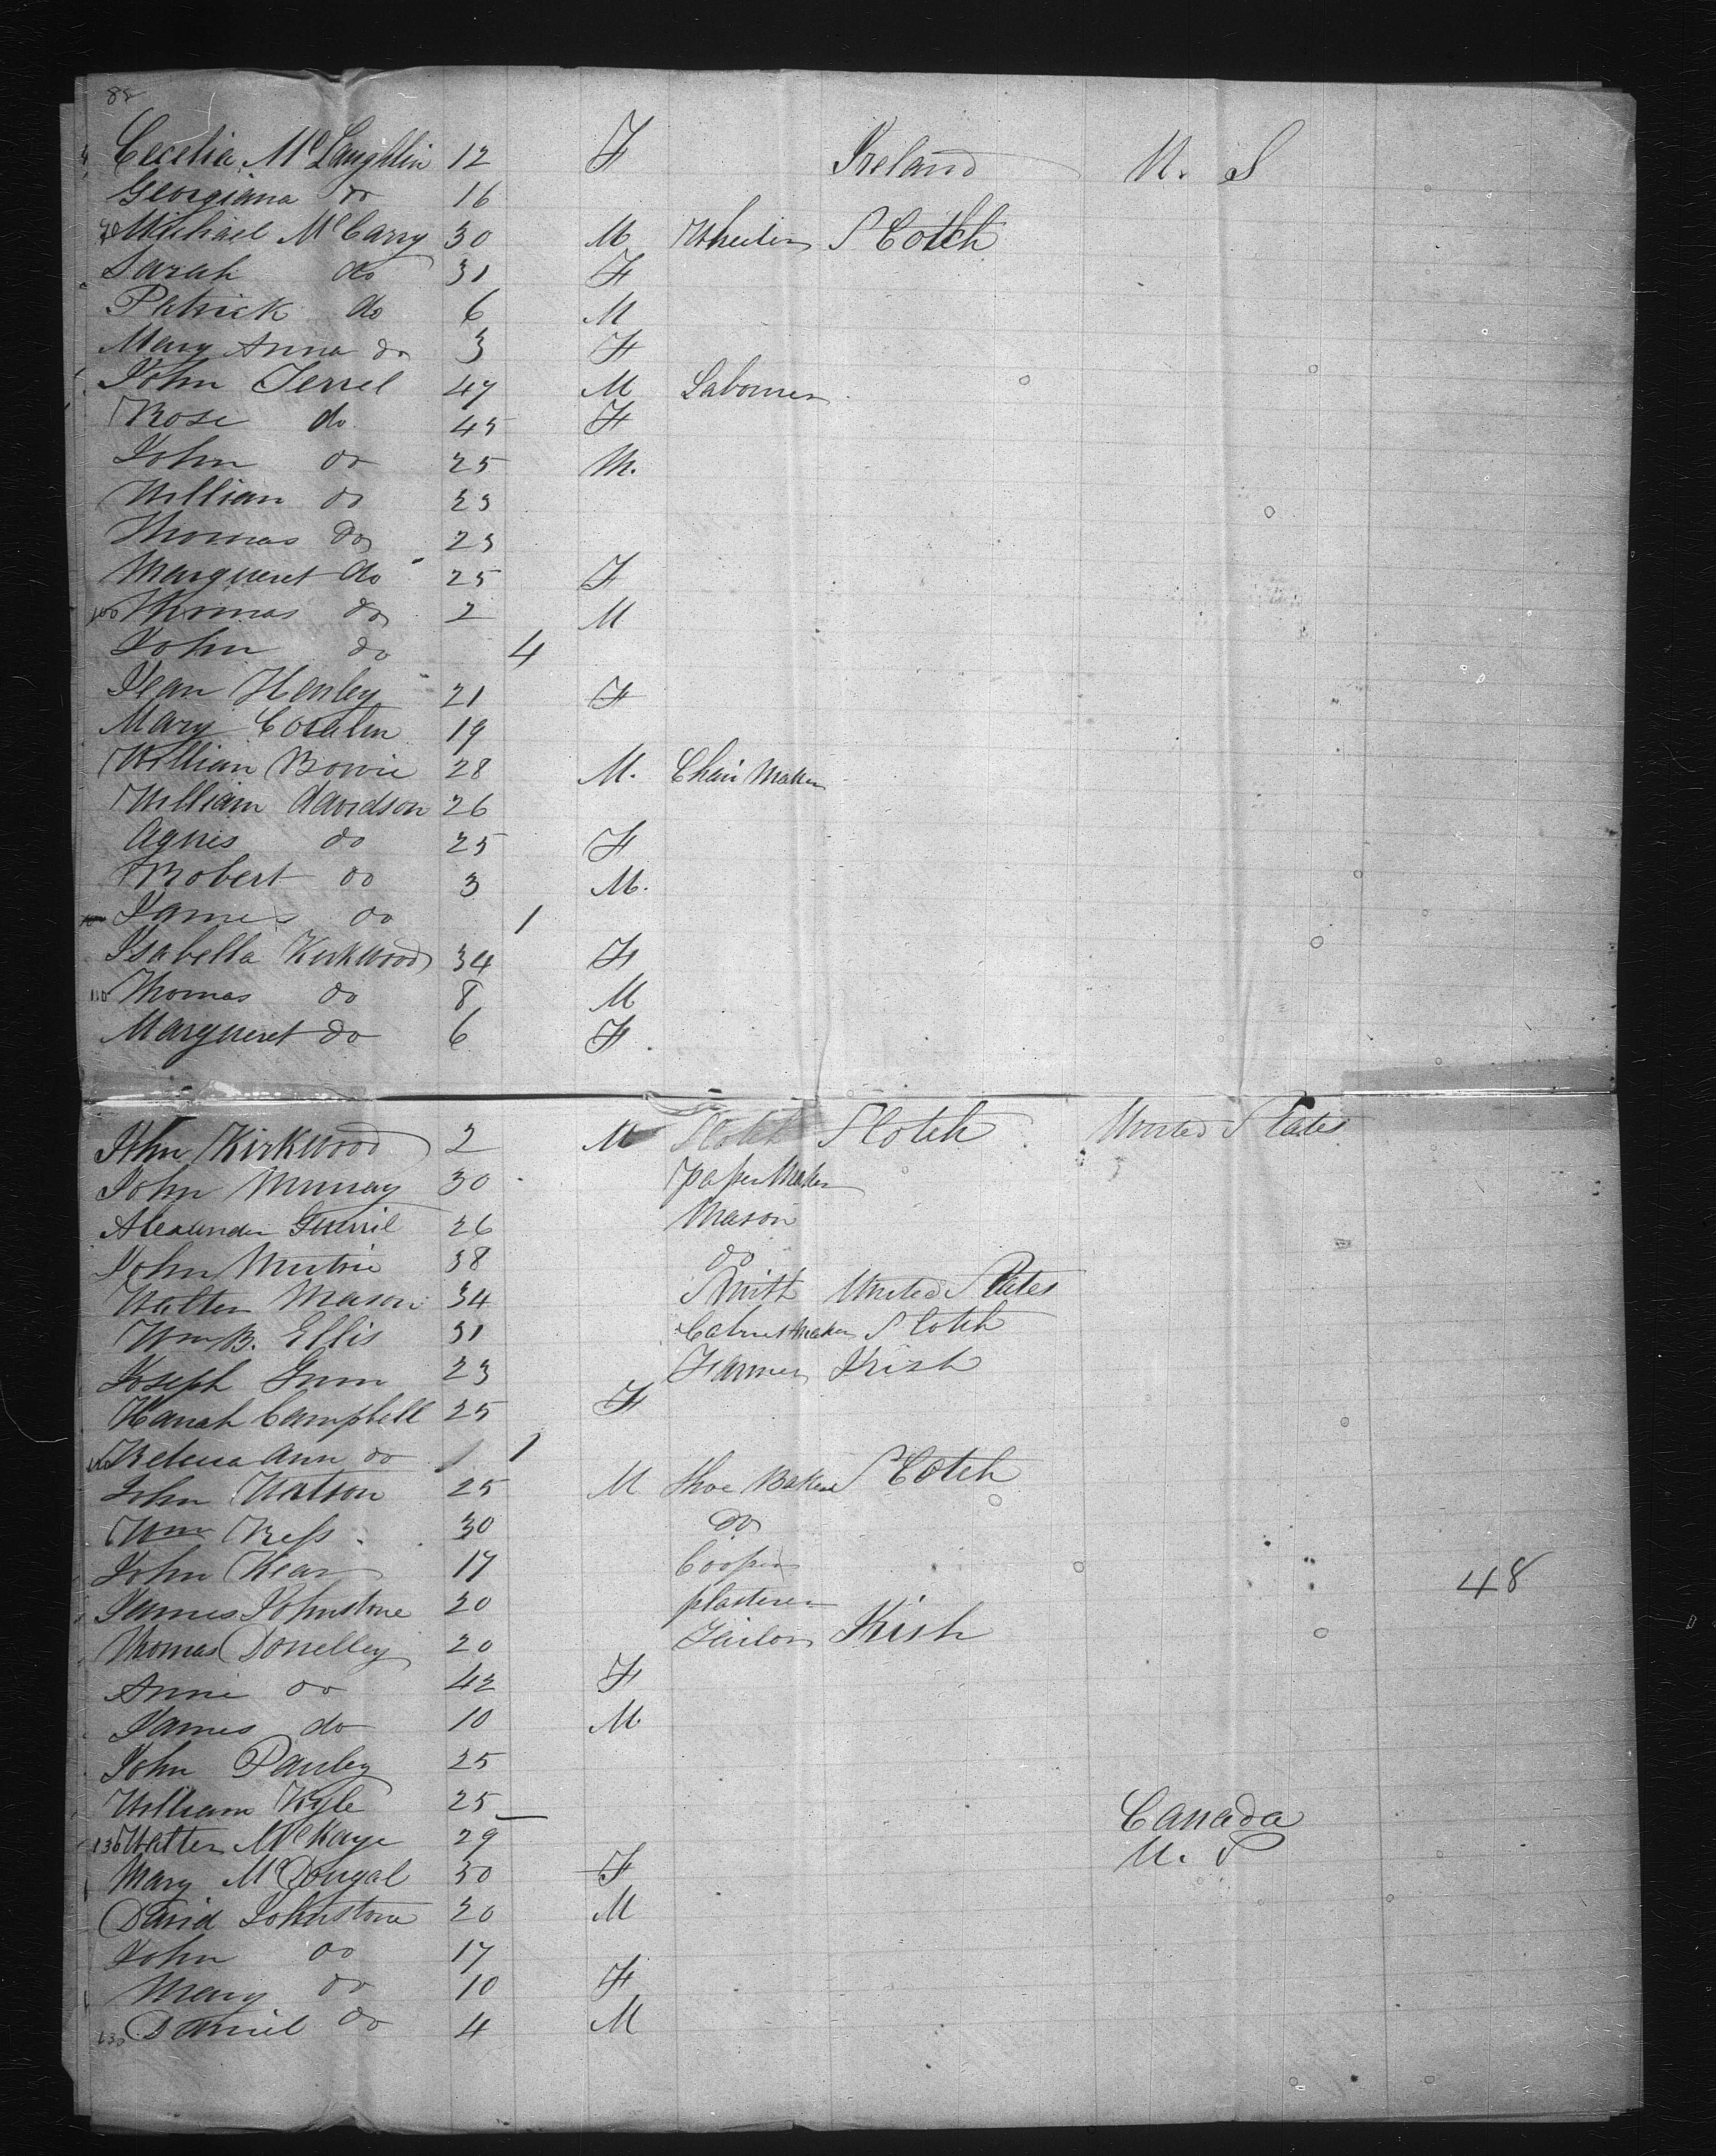 88
Cecelia McLaughlin 12 F Ireland U. S
Georgiana do 16
Michael McCarry 30 M Scotch
Sarah do 31 F
Patrick do 6 M
Mary Anna do 3 F
John Terrel 47 M Labourer
Rose do 45 F
John do 25 M.
William do 23
Thomas do 23
Margueret do 25 F
100 Thomas do 2 M
John do 4
Jean Henley 21 F
Mary 19
William Bowie 28 M. Chair Maker
William Davidson 26
Agnes do 25 F
Robert do 3 M.
James do 1
Isabella Kirkwood 34 F
110 Thomas do 8 M
Margueret do 6 F.
John Kirkwood 2 M Scotch Scotch United States
John Murray 30 paper Maker
Alexander 26 Mason
John 38 do
Walter Mason 34 Smith United States
Wm B. Ellis 31 Cabinet Maker Scotch
Joseph Gunn 23 Farmer Irish
Hanah Campbell 25 F
Rebecca Ann do 1
John Watson 25 M Shoe Maker Scotch
Wm Ress 30 do
John Kear 17 Cooper
James Johnstone 20 plasterer 48
Thomas Donelley 20 Tailor Irish
Anne do 42 F
James do 10 M
John Pauley 25
William Kyle 25 Canada
130 Walter McKaye 29 U. S
Mary McDougal 30 F
David Johnstone 20 M
John do 17
Mary do 10 F
Daniel do 4 M